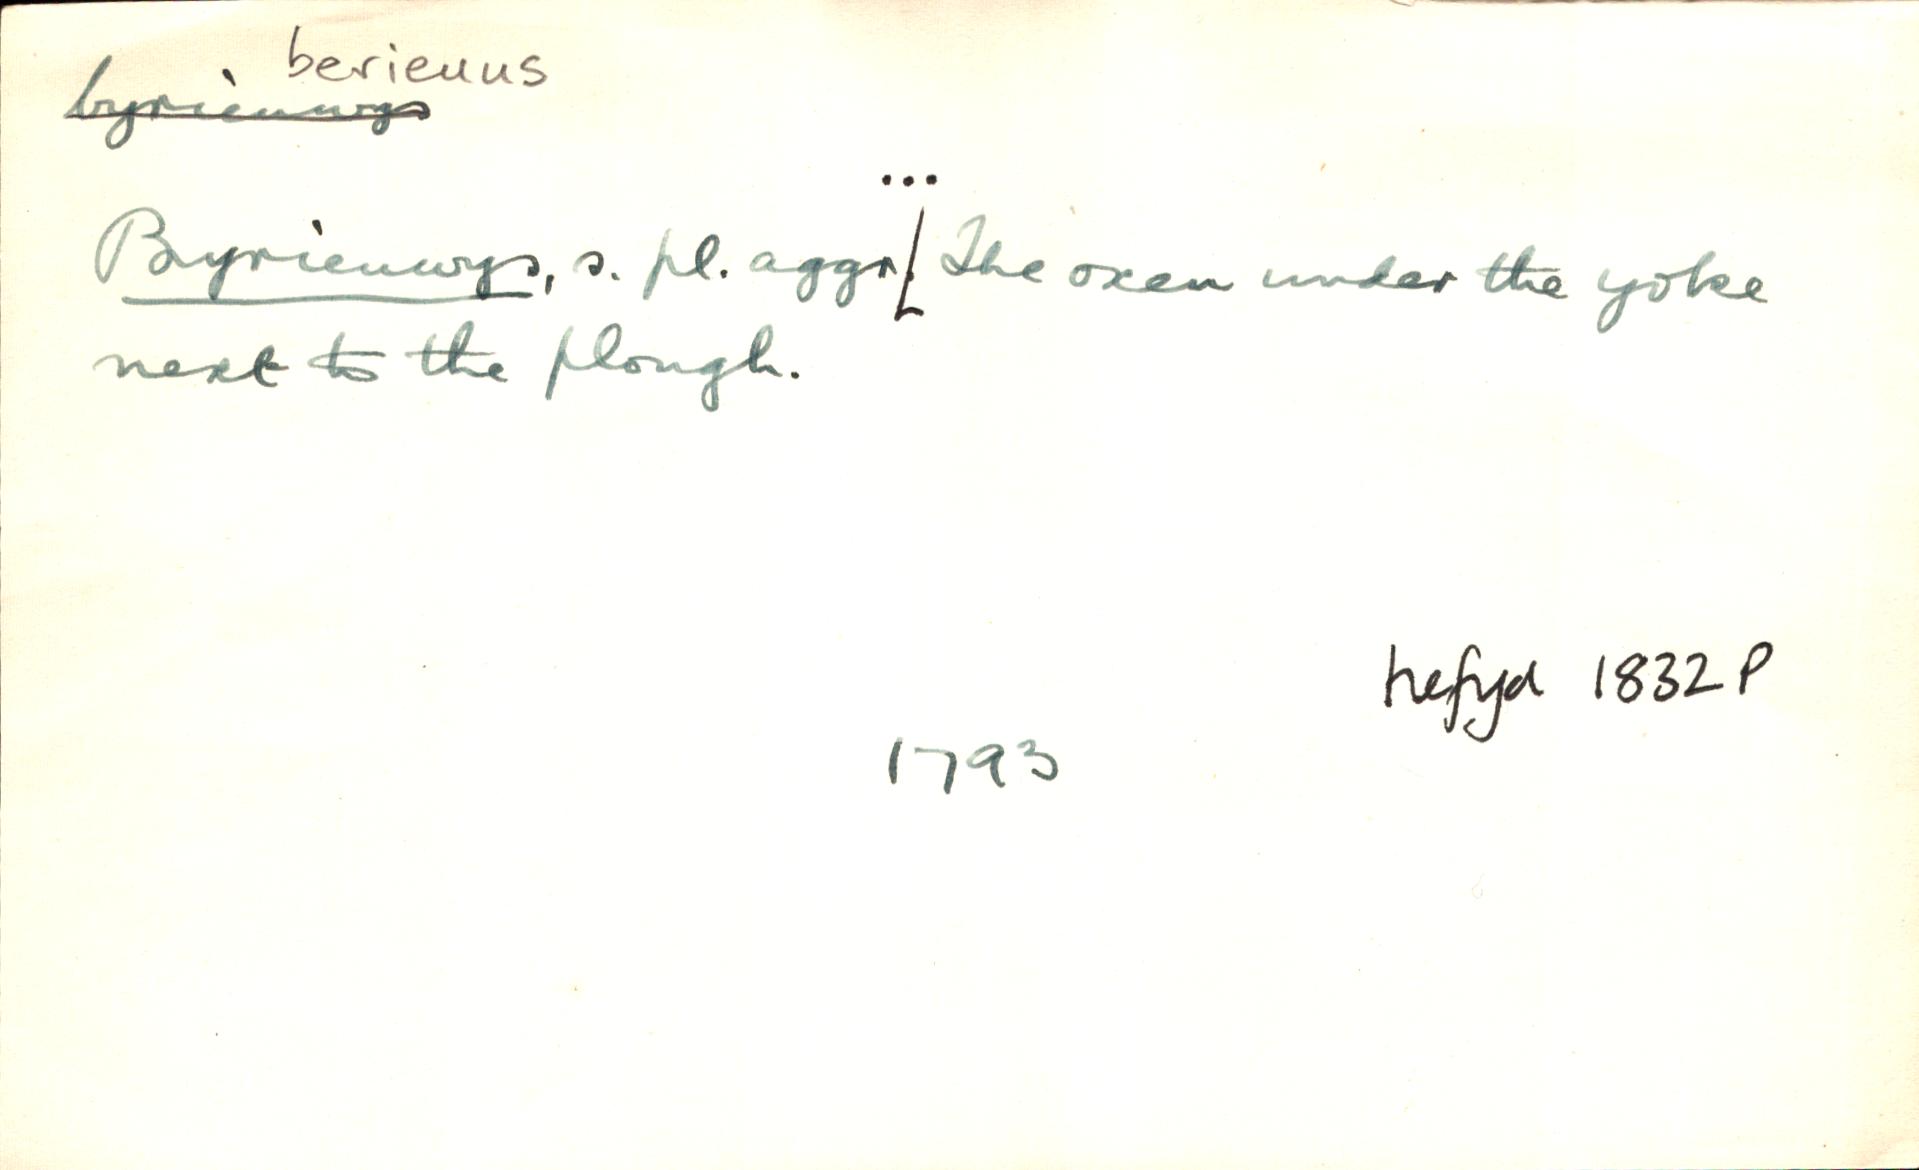 berieuus
byrieuwys
...
Byrieuwys, s. pl. aggr[ The oxen under the yoke
next to the plough.
hefyd 1832 P
1793